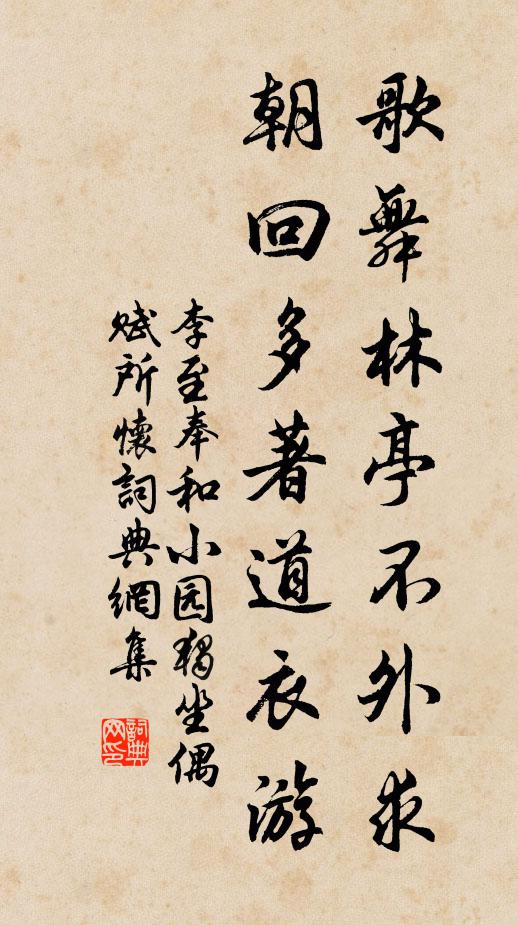 歌舞林亭不外求
朝回多著道衣游
李至奉和小园独坐偶
赋所懷詞典網集
詞典网印